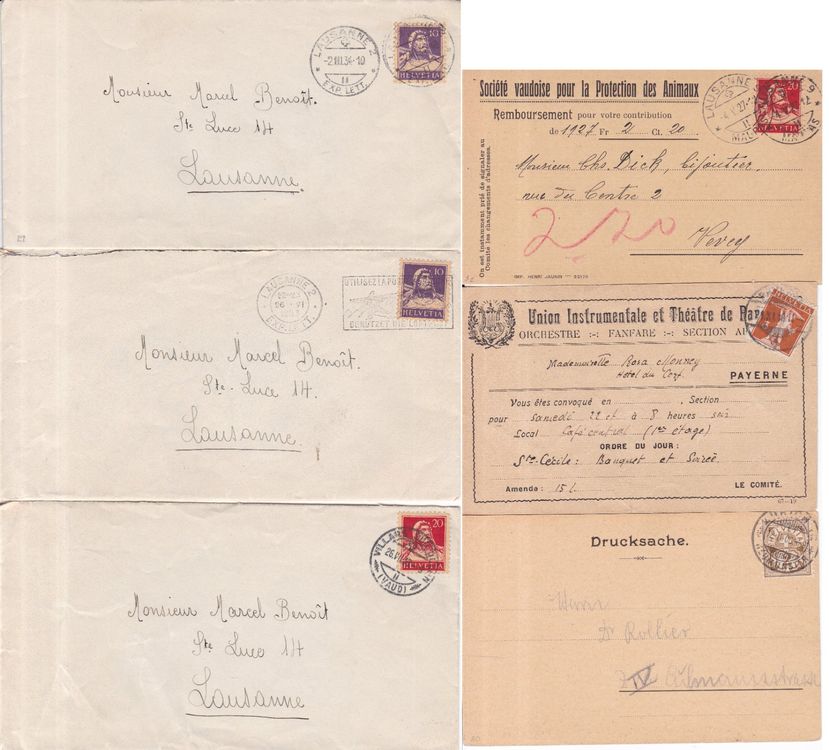 LAUSANNE 2
-2.III.34-10
EXP. LETT.
10
HELVETIA
Monsieur Marcel Benoît.
Ste Luce 14
Lausanne.
LAUSANNE 2
EXP. LETT.
UTILISEZ LA POS
BENUTZET DIE LUFTPOST
10
HELVETIA
Monsieur Marcel Benoît.
Ste. Luce 14.
Lausanne.
VILLA
26.VI
(VAUD)
20
HELVETIA
Monsieur Marcel Benoît
Ste Luce 14
Lausanne
Société vaudoise pour la Protection des Animaux
LAUSANNE 9
20
HELVETIA
Remboursement pour votre contribution
de 1927 Fr 2 Ct. 20
On est instamment prié de signaler au
Comité les changements d'adresses.
Monsieur Chs. Dick, bijoutier
rue du Centre 2
2.20
Vevey
IMP. HENRI JAUNIN
Union Instrumentale et Théâtre de
ORCHESTRE :-: FANFARE :-: SECTION
Mademoiselle Rosa Monney
Hôtel du Cerf.
PAYERNE
Vous êtes convoqué en , Section
pour Samedi 22 ct à 8 heures soir
Local Café central (1er étage)
ORDRE DU JOUR :
Ste-Cécile : Banquet et Soirée
Amende : 15 c.
LE COMITÉ.
Drucksache.
Herrn
Dr Rollier
IV